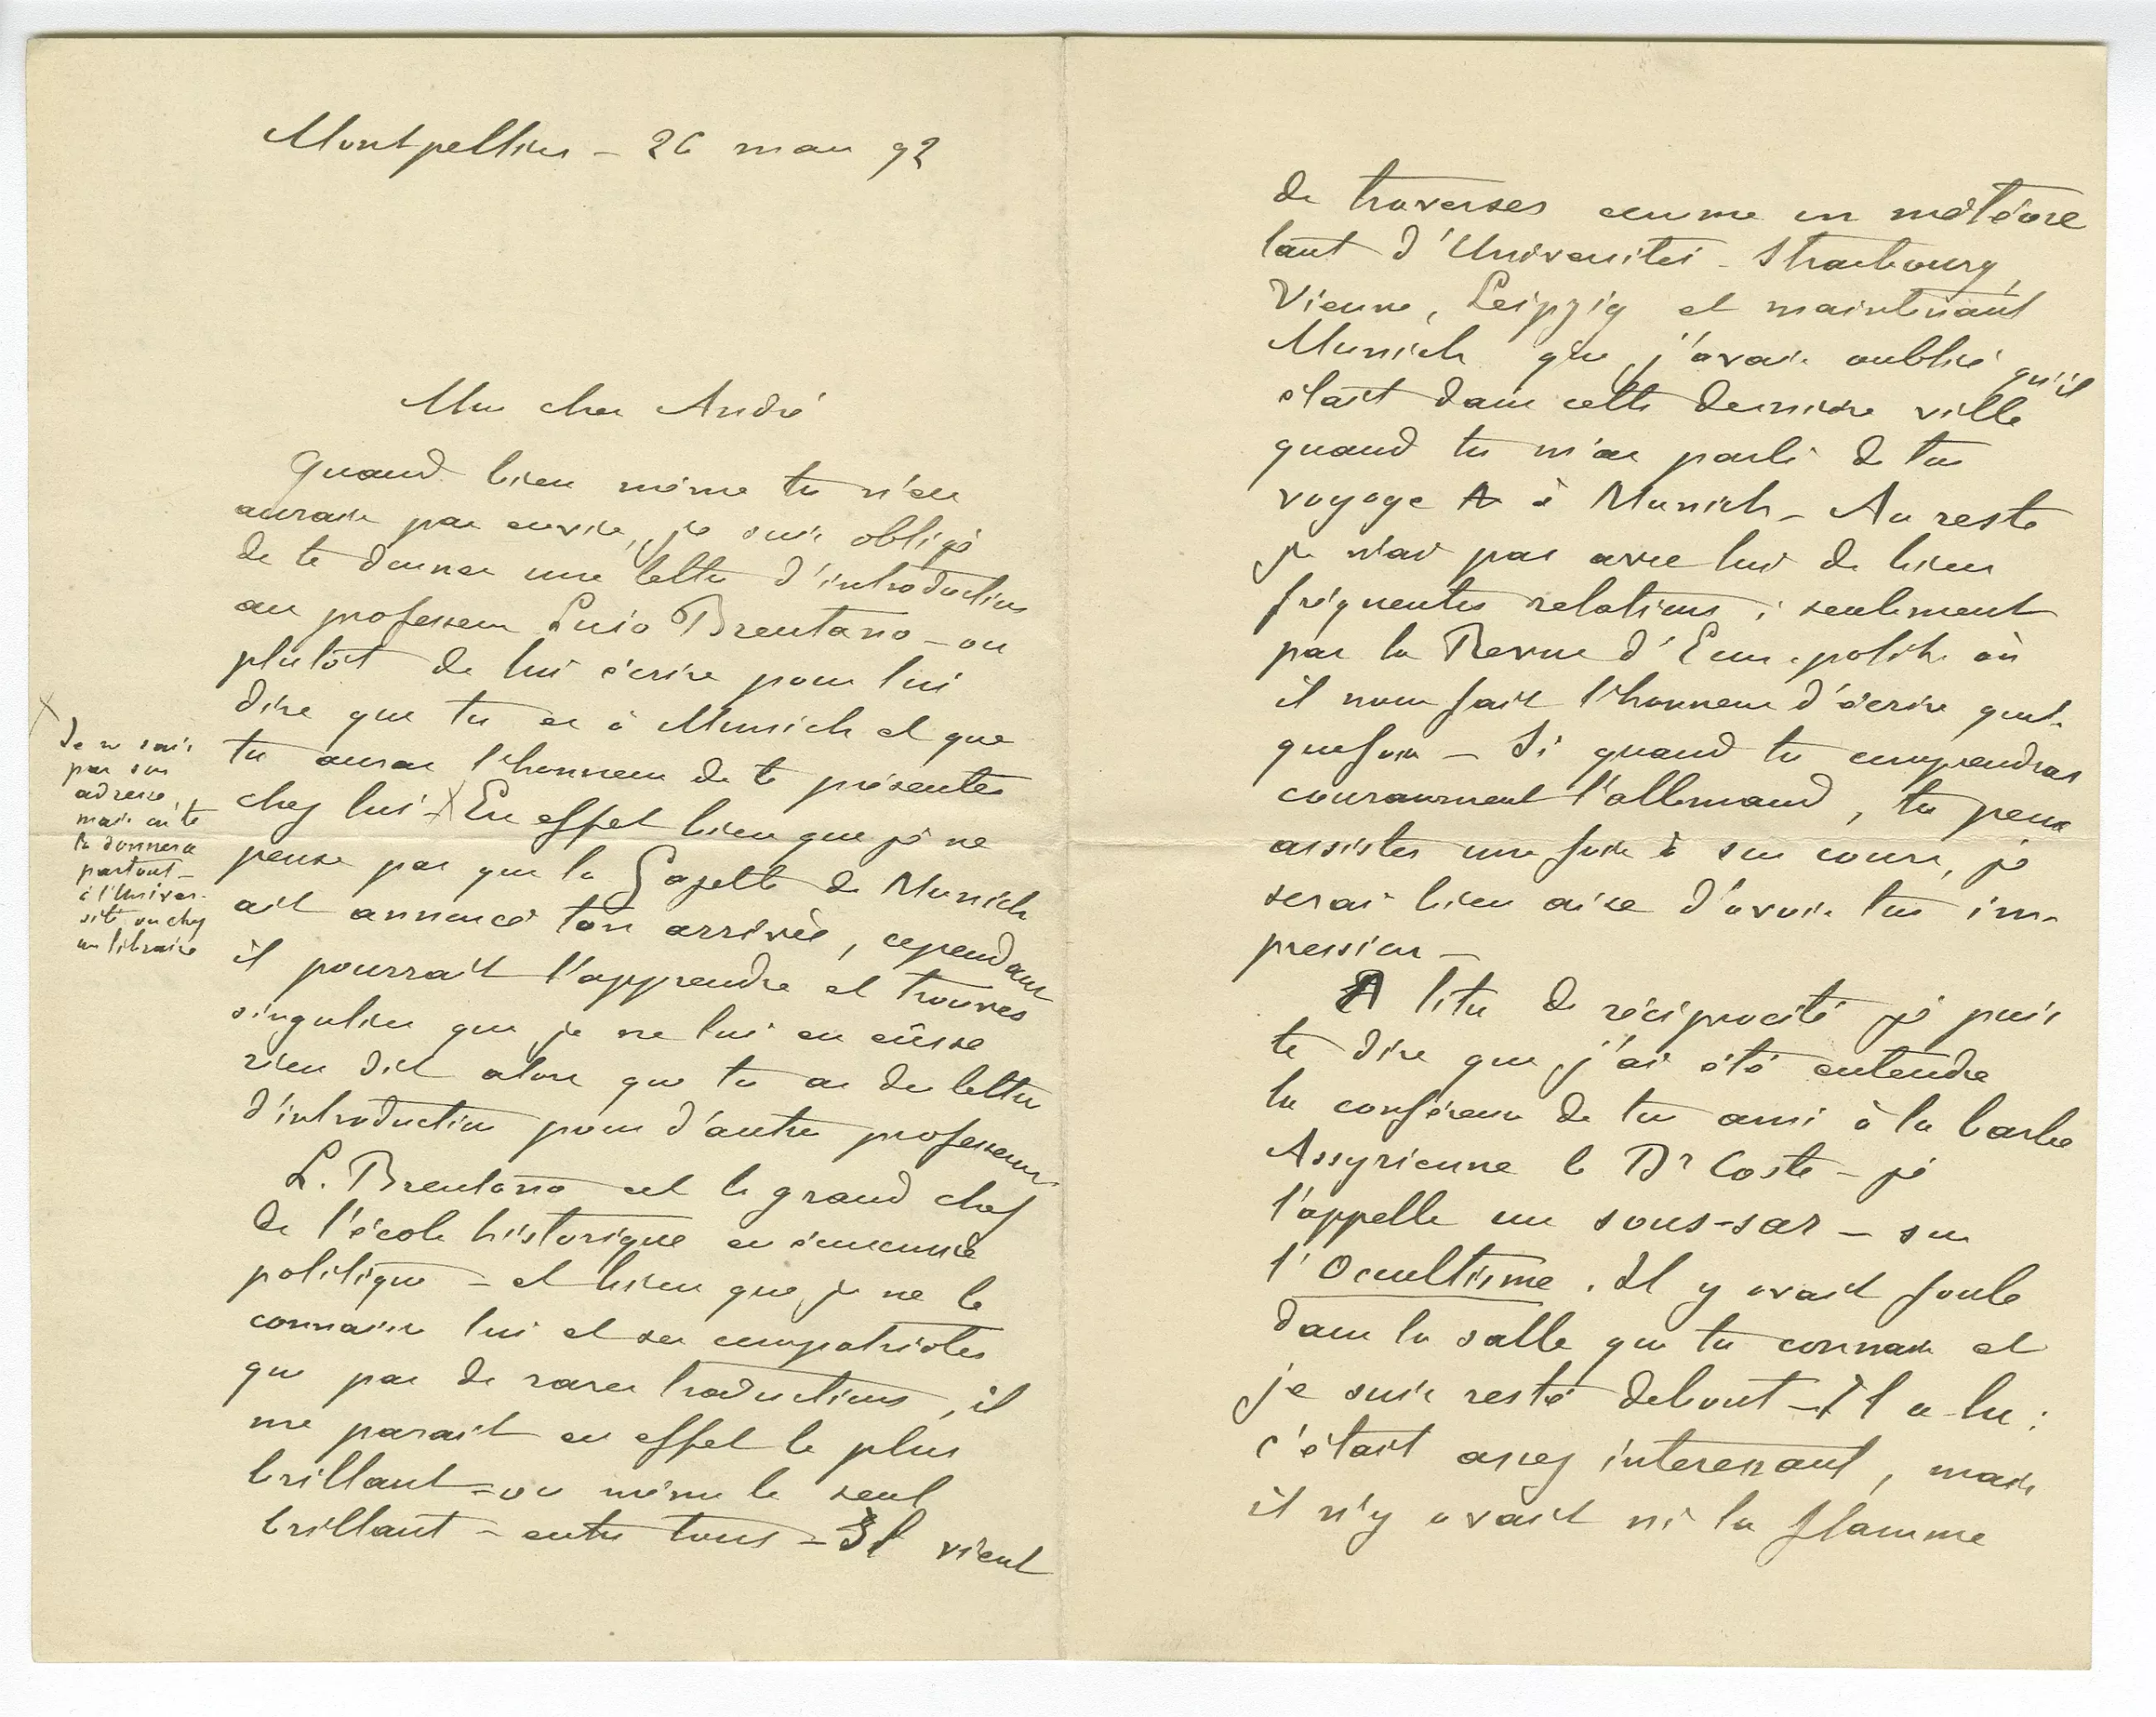 Montpellier - 26 mars 92
Mon cher André
Quand bien même tu n'en
aurais pas envie, je suis obligé
de te donner une lettre d'introduction
au professeur Lujo Brentano - ou
plutôt de lui écrire pour lui
dire que tu es à Munich et que
tu auras l'honneur de te présenter
chez lui - X En effet bien que je ne
pense pas que la Gazette de Munich
ait annoncé ton arrivée, cependant
il pourrait l'apprendre et trouver
singulier que je ne lui en eusse
rien dit alors que tu as des lettres
d'introduction pour d'autres professeurs.
L. Brentano est le grand chef
de l'école historique en économie
politique - et bien que je ne le
connaisse lui et ses compatriotes
que par de rares traductions, il
me parait en effet le plus
brillant - ou même le seul
brillant - entre tous - Il vient
X
Je ne sais
pas son
adresse,
mais on te
la donnera
partout -
à l'Univer-
sité ou chez
un libraire
de traverser comme un météore
tant d'Universités - Strasbourg,
Vienne, Leipzig et maintenant
Munich que j'avais oublié qu'il
était dans cette dernière ville
quand tu m'as parlé de ton
voyage à Munich - Au reste
je n'ai pas avec lui de bien
fréquentes relations ; seulement
par la Revue d'Econ. polit. où
il nous fait l'honneur d'écrire quel-
quefois - Si quand tu comprendras
couramment l'allemand, tu peux
assister une fois à son cours, je
serai bien aise d'avoir ton im-
pression -
A titre de réciprocité je puis
te dire que j'ai été entendre
la conférence de ton ami à la barbe
Assyrienne le Dr Coste - je
l'appelle un sous-sar - sur
l'Occultisme. Il y avait foule
dans la salle que tu connais et
je suis resté debout - Il a lu :
c'était assez interessant, mais
il n'y avait ni la flamme